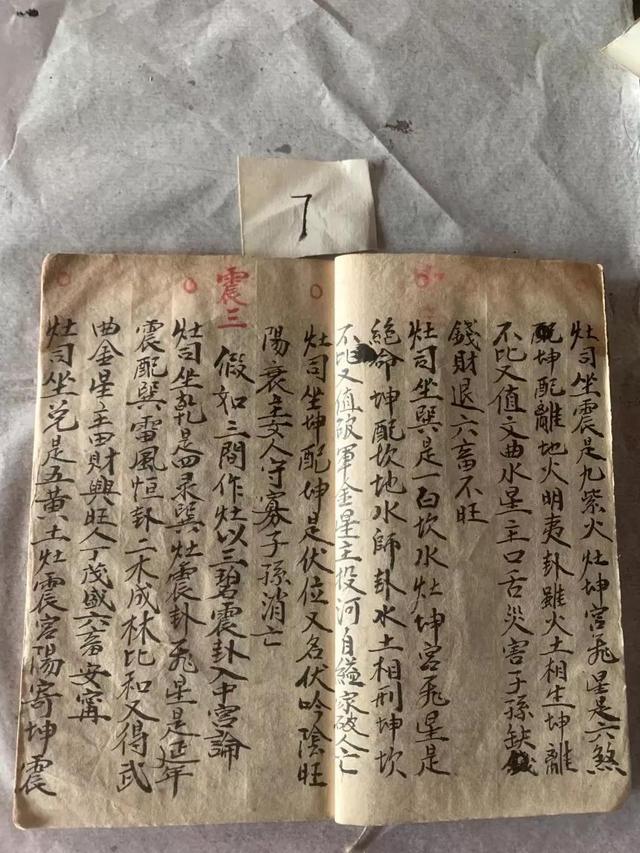 7
灶司坐震是九紫火灶坤宫飛星是六煞
配坤配離地火明夷卦雖火土相生坤離
不比又值文曲水星主口舌災害子孫缺
錢財退六畜不旺
灶司坐巽是一白坎水灶坤宫飛星是
絕命坤配坎地水師卦水土相刑坤坎
不比又值破軍金星主投河自縊家破人亡
灶司坐坤配坤是伏位又名伏吟陰旺
陽衰主女人守寡子孫消亡
震三
假如三間作灶以三碧震卦入中宫論
灶司坐乾是四录巽灶震卦飛星是延年
震配巽雷風恒卦二木成林比和又得武
曲金星主田財興旺人丁茂盛六畜安寧
灶司坐兌是五黄土灶震宫陽寄坤震